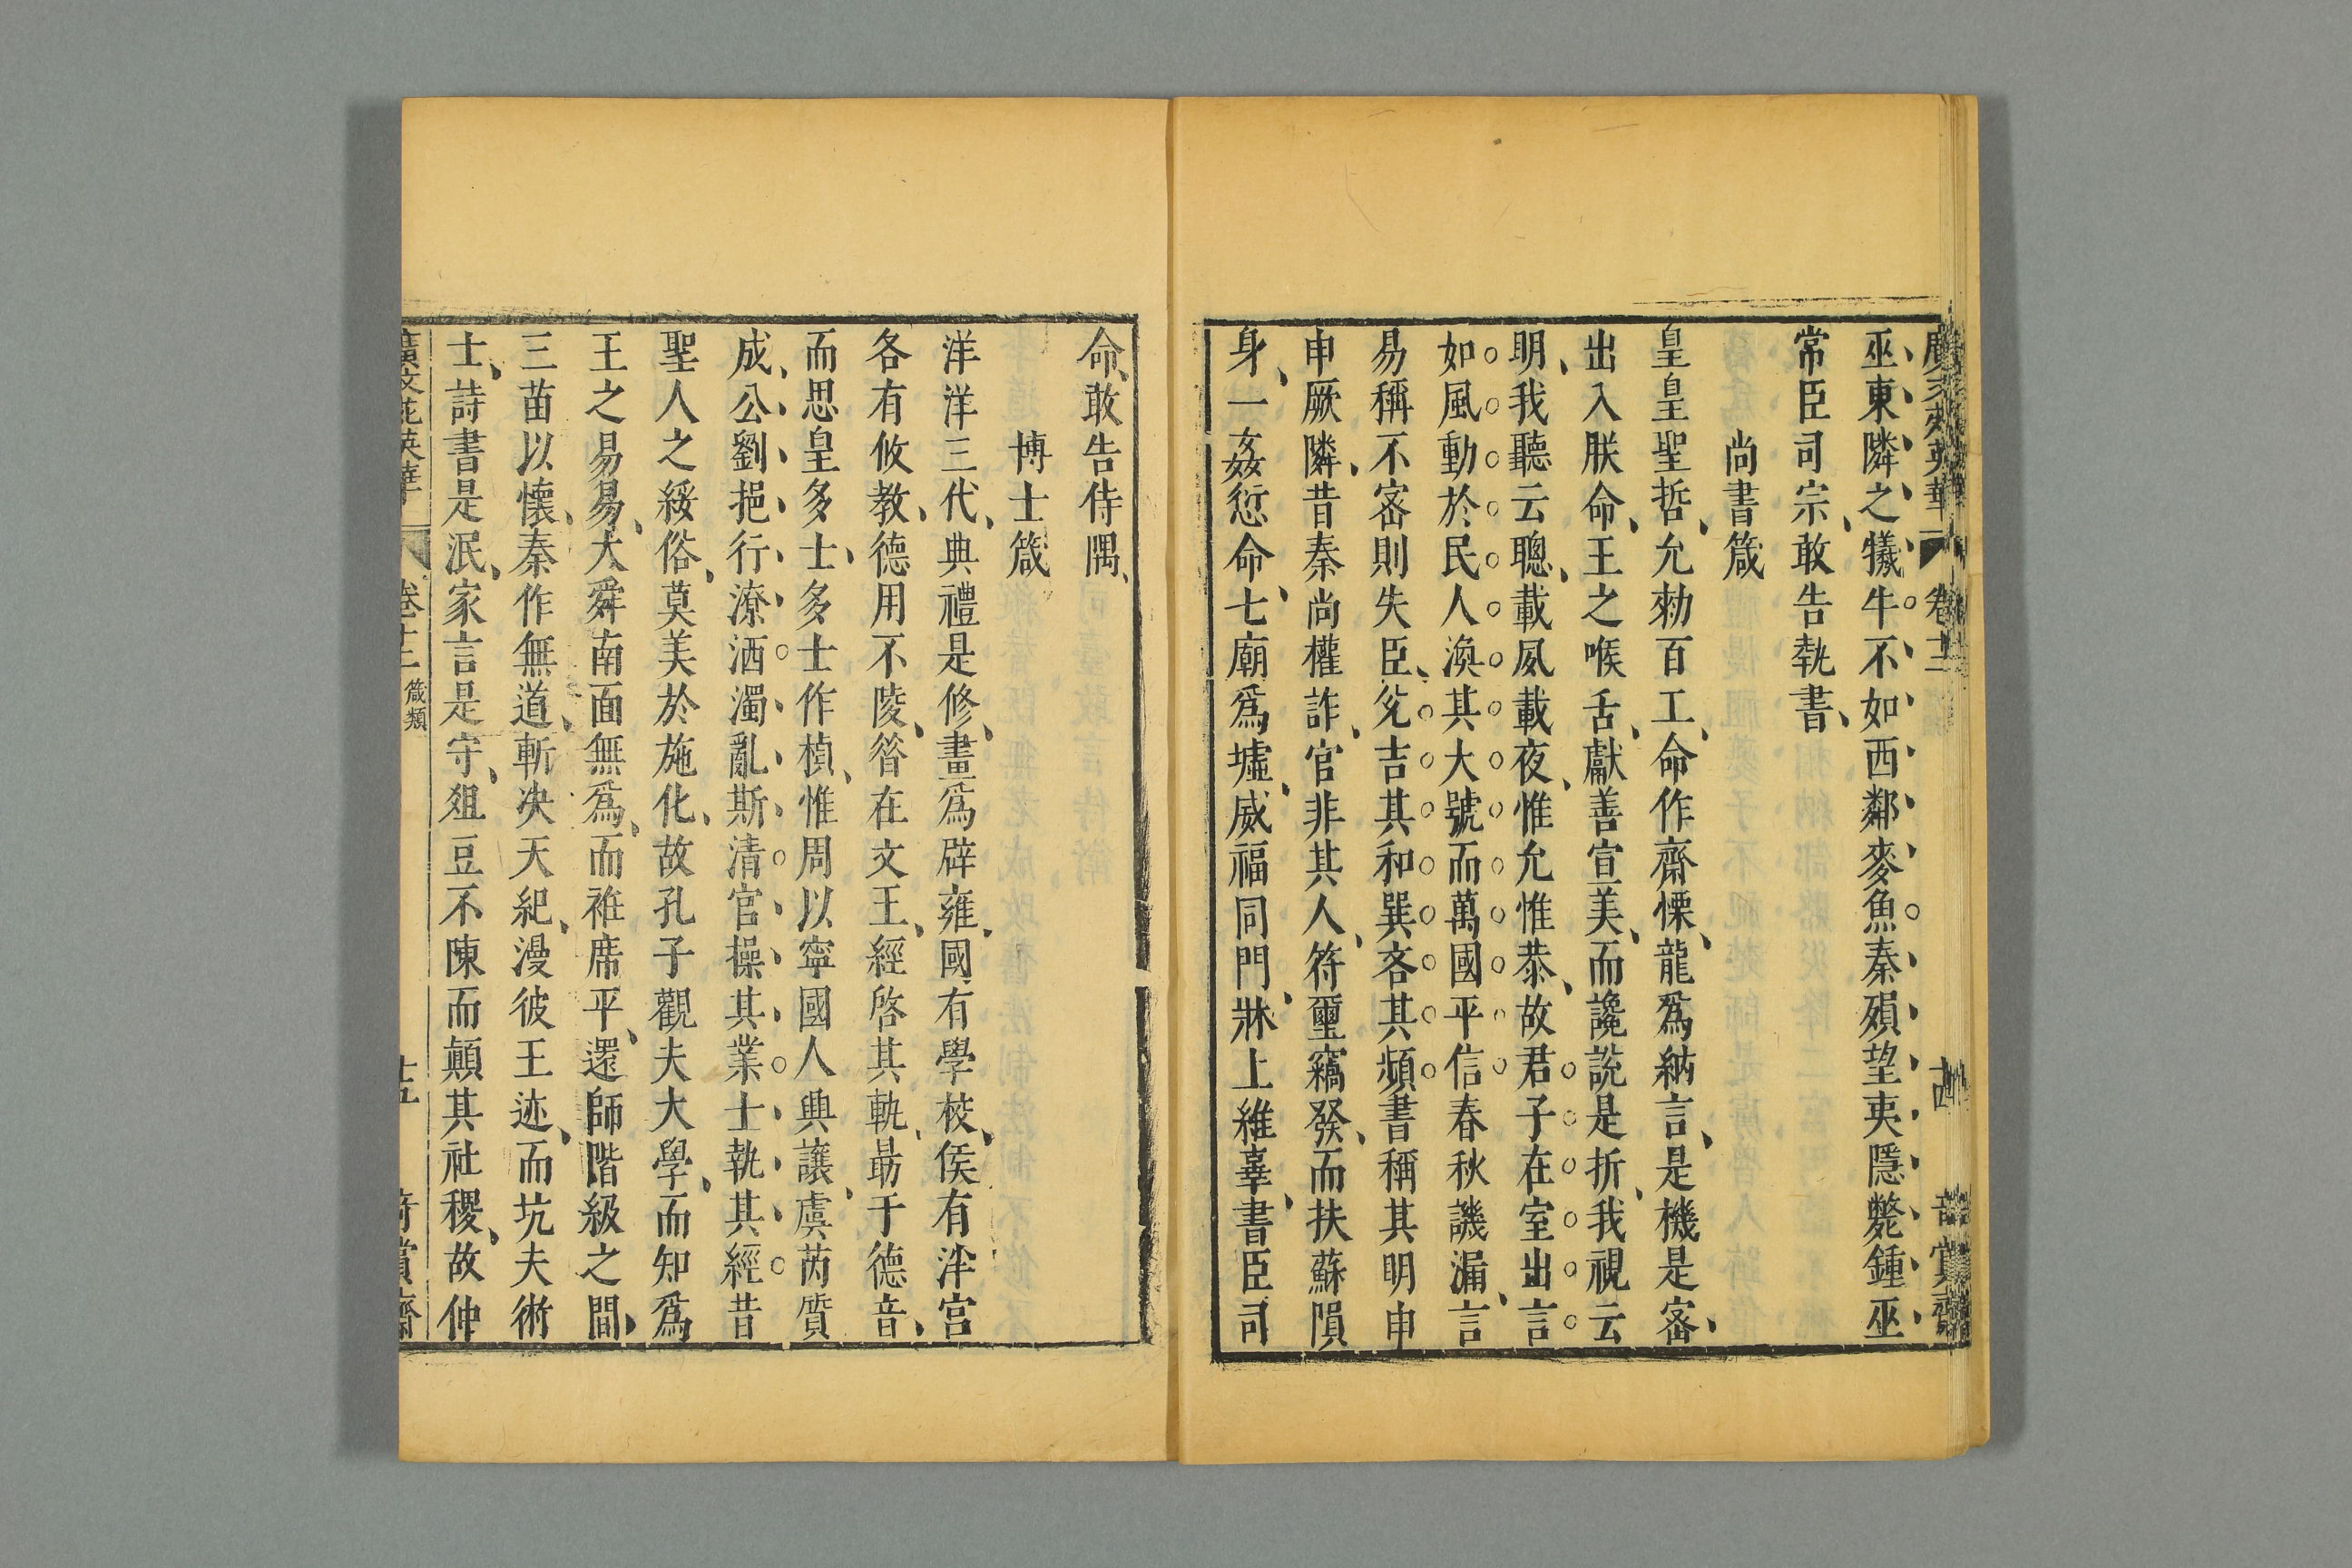 廣文苑英華 卷十三 十四 奇賞齋
巫東隣之犧牛不如西鄰麥魚秦殞望夷隱斃鍾巫
常臣司宗敢告執書
尚書箴
皇皇聖哲允勑百工命作齋慄龍爲納言是機是密
出入朕命王之喉舌獻善宣美而讒說是折我視云
明我聽云聰載夙載夜惟允惟恭故君子在室出言
如風動於民人渙其大號而萬國平信春秋譏漏言
易稱不密則失臣兊吉其和巽吝其頻書稱其明申
申厥隣昔秦尚權詐官非其人符璽竊發而扶蘇隕
身一姦愆命七廟爲墟威福同門牀上維辜書臣司
命敢告侍隅
博士箴
洋洋三代典禮是修畫爲辟雍國有學校侯有泮宮
各有攸教德用不陵昝在文王經啓其軌勗于德音
而思皇多士多士作楨惟周以寧國人興讓虞芮質
成公劉挹行潦洒濁亂斯清官操其業士執其經昔
聖人之綏俗莫美於施化故孔子觀夫大學而知爲
王之易易大舜南面無爲而袵席平還師階級之間
三苗以懷秦作無道斬決天紀漫彼王迹而坑夫術
士詩書是泯家言是守俎豆不陳而顛其社稷故仲
廣文苑英華 卷十三 箴類 十五 奇賞齋